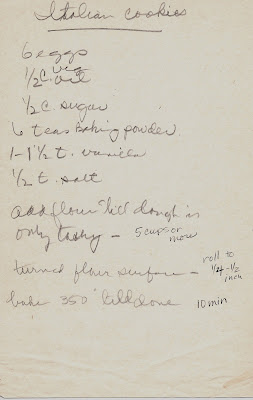 Italian cookies
6 eggs
1/2 c. veg oil
1/2 c. sugar
6 teas baking powder
1-1 1/2 t. vanilla
1/2 t. salt
add flour till dough is
only tacky - 5 cups or more
turned flour surface - roll to 1/4-1/2 inch
bake 350° till done 10 min